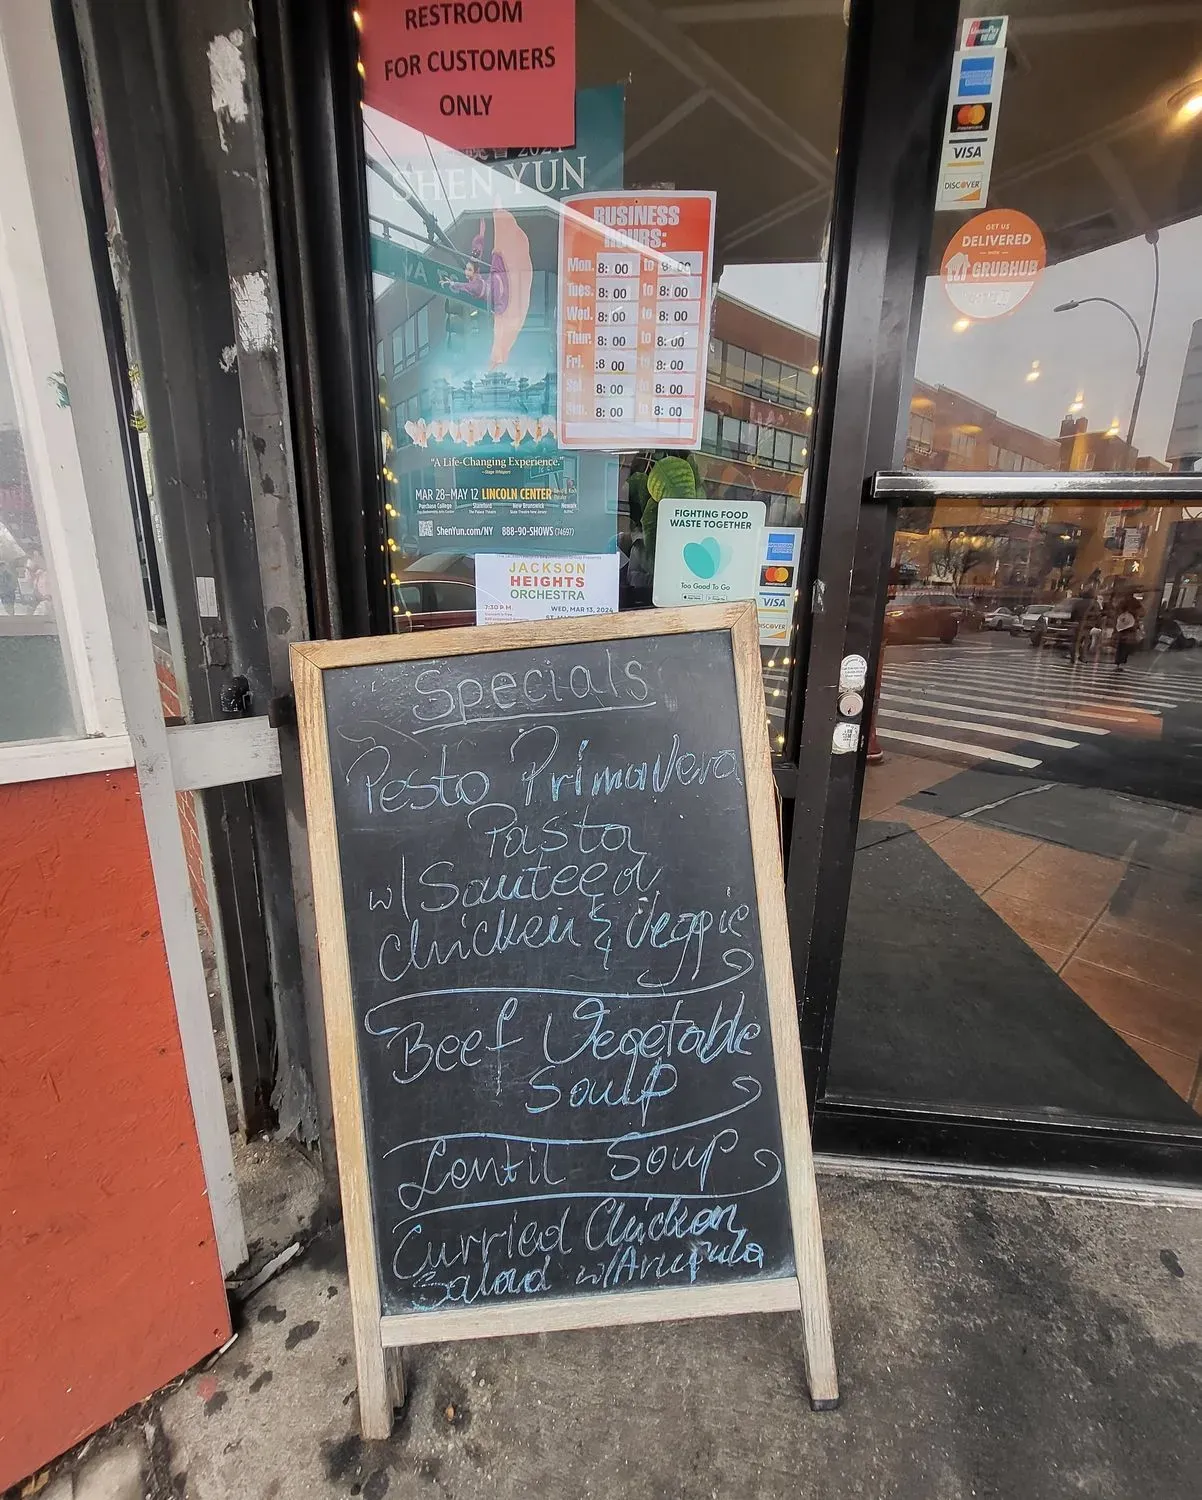 RESTROOM
FOR CUSTOMERS
ONLY
SHEN YUN
"A Life-Changing Experience."
MAR 28–MAY 12 LINCOLN CENTER
Purchase College
Stamford
New Brunswick
Newark
ShenYun.com/NY 888-90-SHOWS (74697)
BUSINESS
HOURS:
Mon. 8:00 to 8:00
Tues. 8:00 to 8:00
Wed. 8:00 to 8:00
Thur. 8:00 to 8:00
Fri. :8 00 8:00
8:00 8:00
8:00 8:00
JACKSON
HEIGHTS
ORCHESTRA
7:30 P.M. WED, MAR 13, 2024
FIGHTING FOOD
WASTE TOGETHER
Too Good To Go
VISA
DISCOVER
UnionPay
mastercard
VISA
DISCOVER
GET US
DELIVERED
WITH
GRUBHUB
Specials
Pesto Primavera
Pasta
w/ Sauteed
Chicken & Veggie
Beef Vegetable
Soup
Lentil Soup
Curried Chicken
Salad w/ Arugula